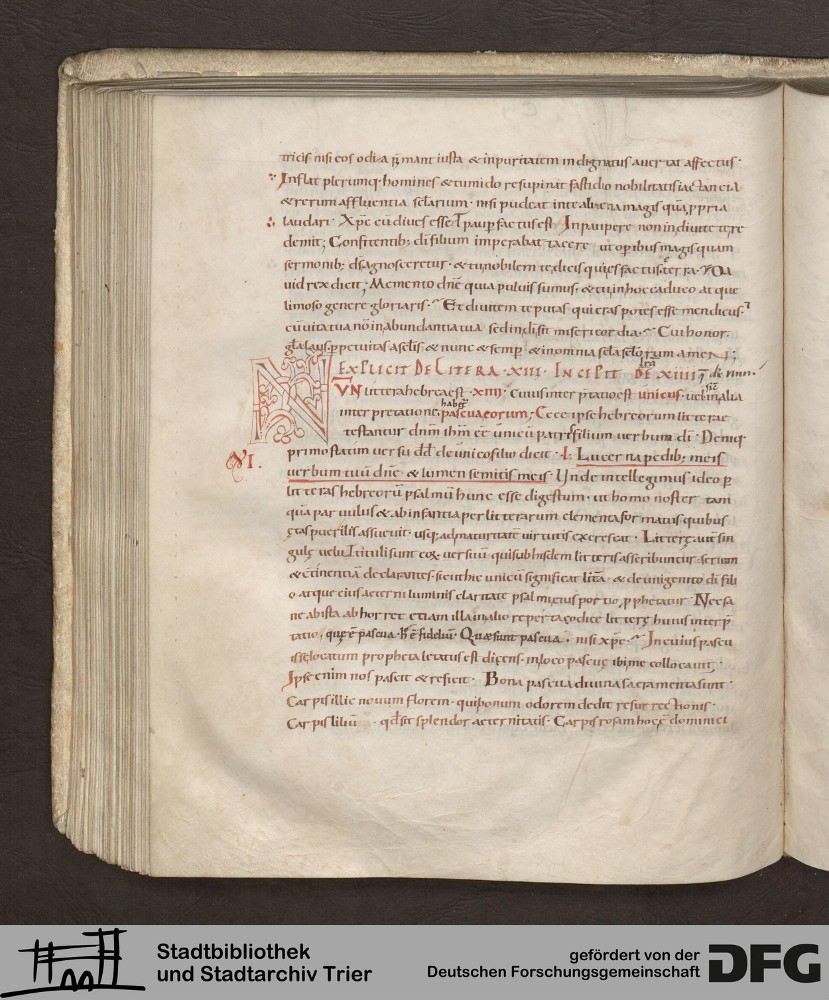 tricis nisi eos odi&a p̄mant iusta & inpuritatem indignatus auertat affectus·
Inflat plerumq· homines & tumido resupinat fastidio nobilitatis iactantia
& rerum affluentia sclarium· nisi pudeat in te aliena magis quā ppria
laudari· Xpc cū diues esset paup factus est Inpaupere non indiuite te re
demit; Confitentib; di filium imperabat tacere ut operibus magis quam
sermonib; ds agnosceretur·
uid rex dicit; Memento dnē quia puluis sumus· & tu inhoc caduco atque
limoso genere gloriaris· Et diuitem te putas qui cras potes esse mendicus·
cū uita tua nō in abundantia tua sed in di sit misericordia· Cui honor·
gla· laus· ppetuitas a sclis & nunc & semp & in omnia scla sclorum amen;
EXPLICIT DE LITERA ·XIII· INCIPIT DE XIIII
UN littera hebrea est ·XIIII· Cuius interptatio est unicus· uel in alia
interpretatione pascua eorum; Ecce ipse hebreorum litterae
testantur dnm ihm ēē unicū patris filium uerbum di· Deniq
primo statim uersu dd de unico filio dicit· Lucerna pedib; meis
VI.
uerbum tuū dnē & lumen semitis meis· Unde intellegimus ideo p
litteras hebreorū psalmū hunc esse digestum· ut homo noster tam
quā paruulus & ab infantia per litterarum elementa formatus quibus
ętas puerilis assueuit· usq; ad maturitatē uirtutis excrescat· Litterę aut sin
gulę uelut tituli sunt
& cōtinentiā declarantes· sicut hic unicū significat litā· & de unigenito di fili
o atque eius aeterni luminis claritate psalmi huius portio pphetatur· Nec sa
ne ab ista abhorret etiam illa in alio reperta codice litterę huius interp
tatio, quę ē pascua· Quae sunt pascua· nisi xpc· In cuius pascu
is se locatum propheta letatus est dicens· in loco pascuę ibi me collocauit;
Ipse enim nos pascit & reficit· Bona pascua diuina sacramenta sunt·
Carpis illic nouum florem· qui bonum odorem dedit resurrectionis·
Carpis liliū · qd sit splendor aeternitatis· Carpis rosam hoc ē dominici
Stadtbibliothek
und Stadtarchiv Trier
gefördert von der
Deutschen Forschungsgemeinschaft
DFG